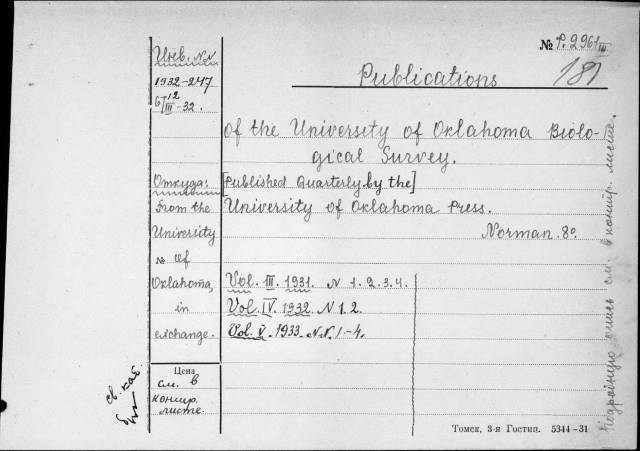 № P.2961 III
181
Publications
Инв. №№
1932-247
6/III 12 -32.
of the University of Oklahoma Biolo-
gical Survey.
Откуда:
[Published Quarterly by the]
From the
University of Oklahoma Press.
University
Norman. 8º.
№ of
Oklahoma,
Vol. III. 1931. N 1. 2. 3. 4.
in
Vol. IV. 1932. N 1. 2.
exchange.
Vol. V. 1933. N.N. 1-4.
Цена
см. в
контр.
листе.
св. каб.
Подробную опись см. в контр. листе.
Томск, 3-я Гостип. 5344-31